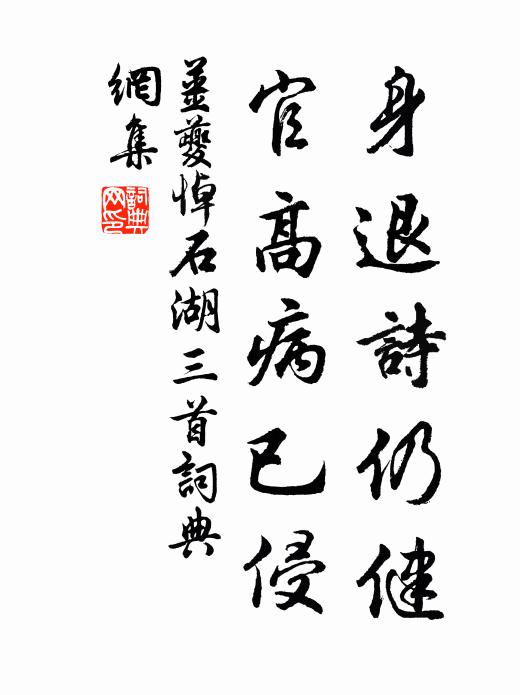 身退詩仍健
官高病已侵
姜夔悼石湖三首詞典
網集
詞典網印